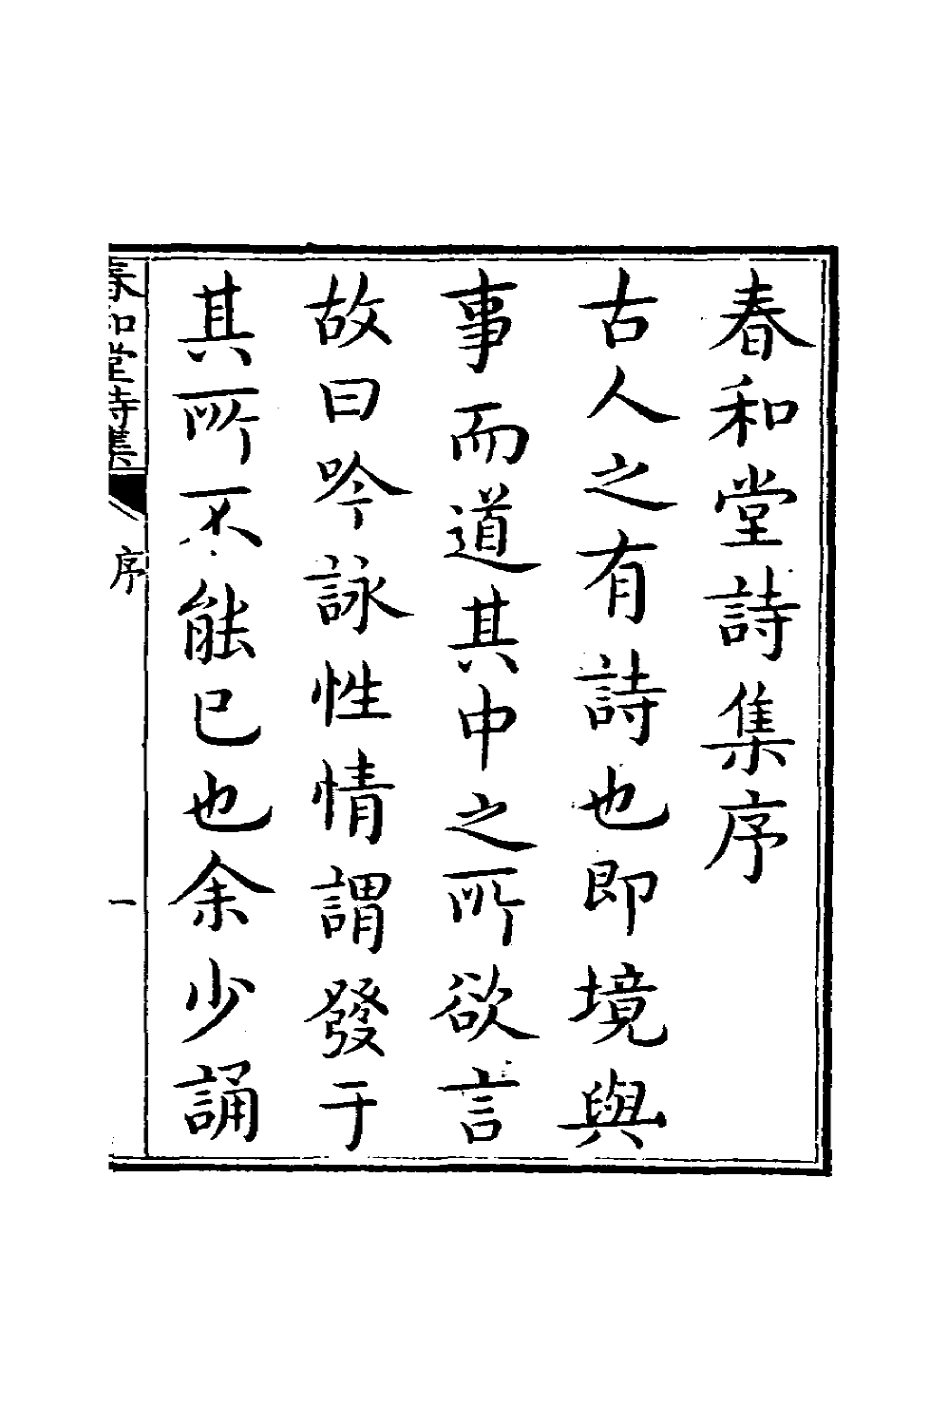 春和堂詩集序
古人之有詩也即境與
事而道其中之所欲言
故曰吟詠性情謂發于
其所不能已也余少誦
春和堂詩集
序
一